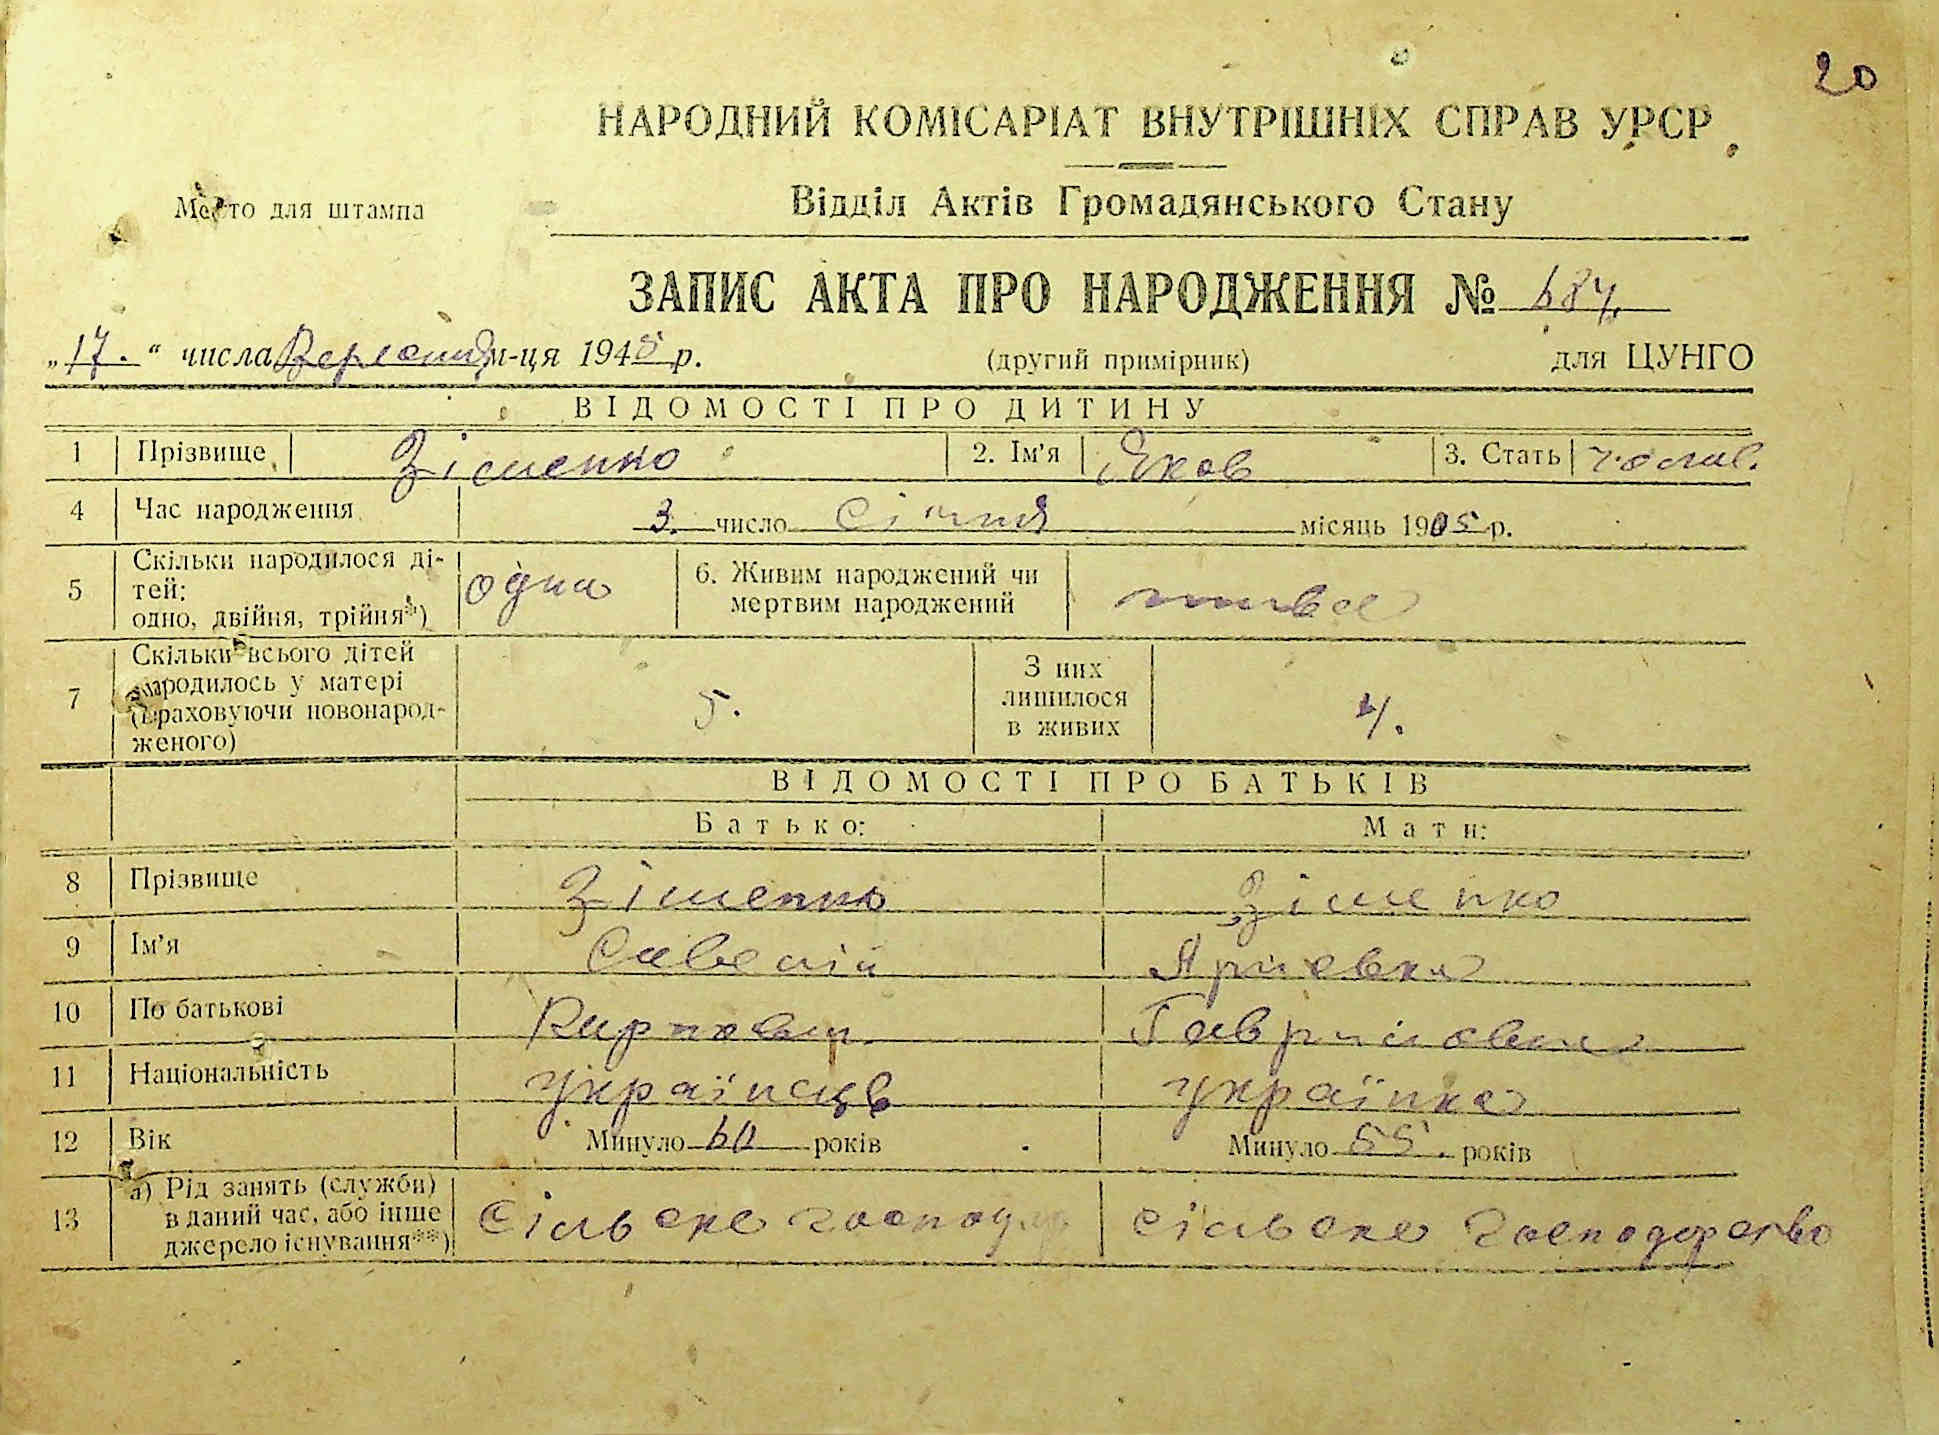 20
НАРОДНИЙ КОМІСАРІАТ ВНУТРІШНІХ СПРАВ УРСР
Место для штампа
Відділ Актів Громадянського Стану
ЗАПИС АКТА ПРО НАРОДЖЕННЯ № 684
„17.“ числа Вересня м-ця 1945 р. (другий примірник) для ЦУНГО
ВІДОМОСТІ ПРО ДИТИНУ
1 Прізвище Зіменко 2. Ім'я Яков 3. Стать
4 Час народження 3. число Січня місяць 1905 р.
5 Скільки народилося ді-
тей:
одно, двійня, трійня*) одна 6. Живим народжений чи
мертвим народжений живе
7 Скільки всього дітей
народилось у матері
(враховуючи новонарод-
женого) 5. З них
лишилося
в живих 4.
ВІДОМОСТІ ПРО БАТЬКІВ
Батько: Мати:
8 Прізвище Зіменко Зіменко
9 Ім'я Савелій
10 По батькові Карпович Гавриловна
11 Національність українець українка
12 Вік Минуло 60 років Минуло 55 років
13 а) Рід занять (служби)
в даний час, або інше
джерело існування**) Сільске господ сільске господарство